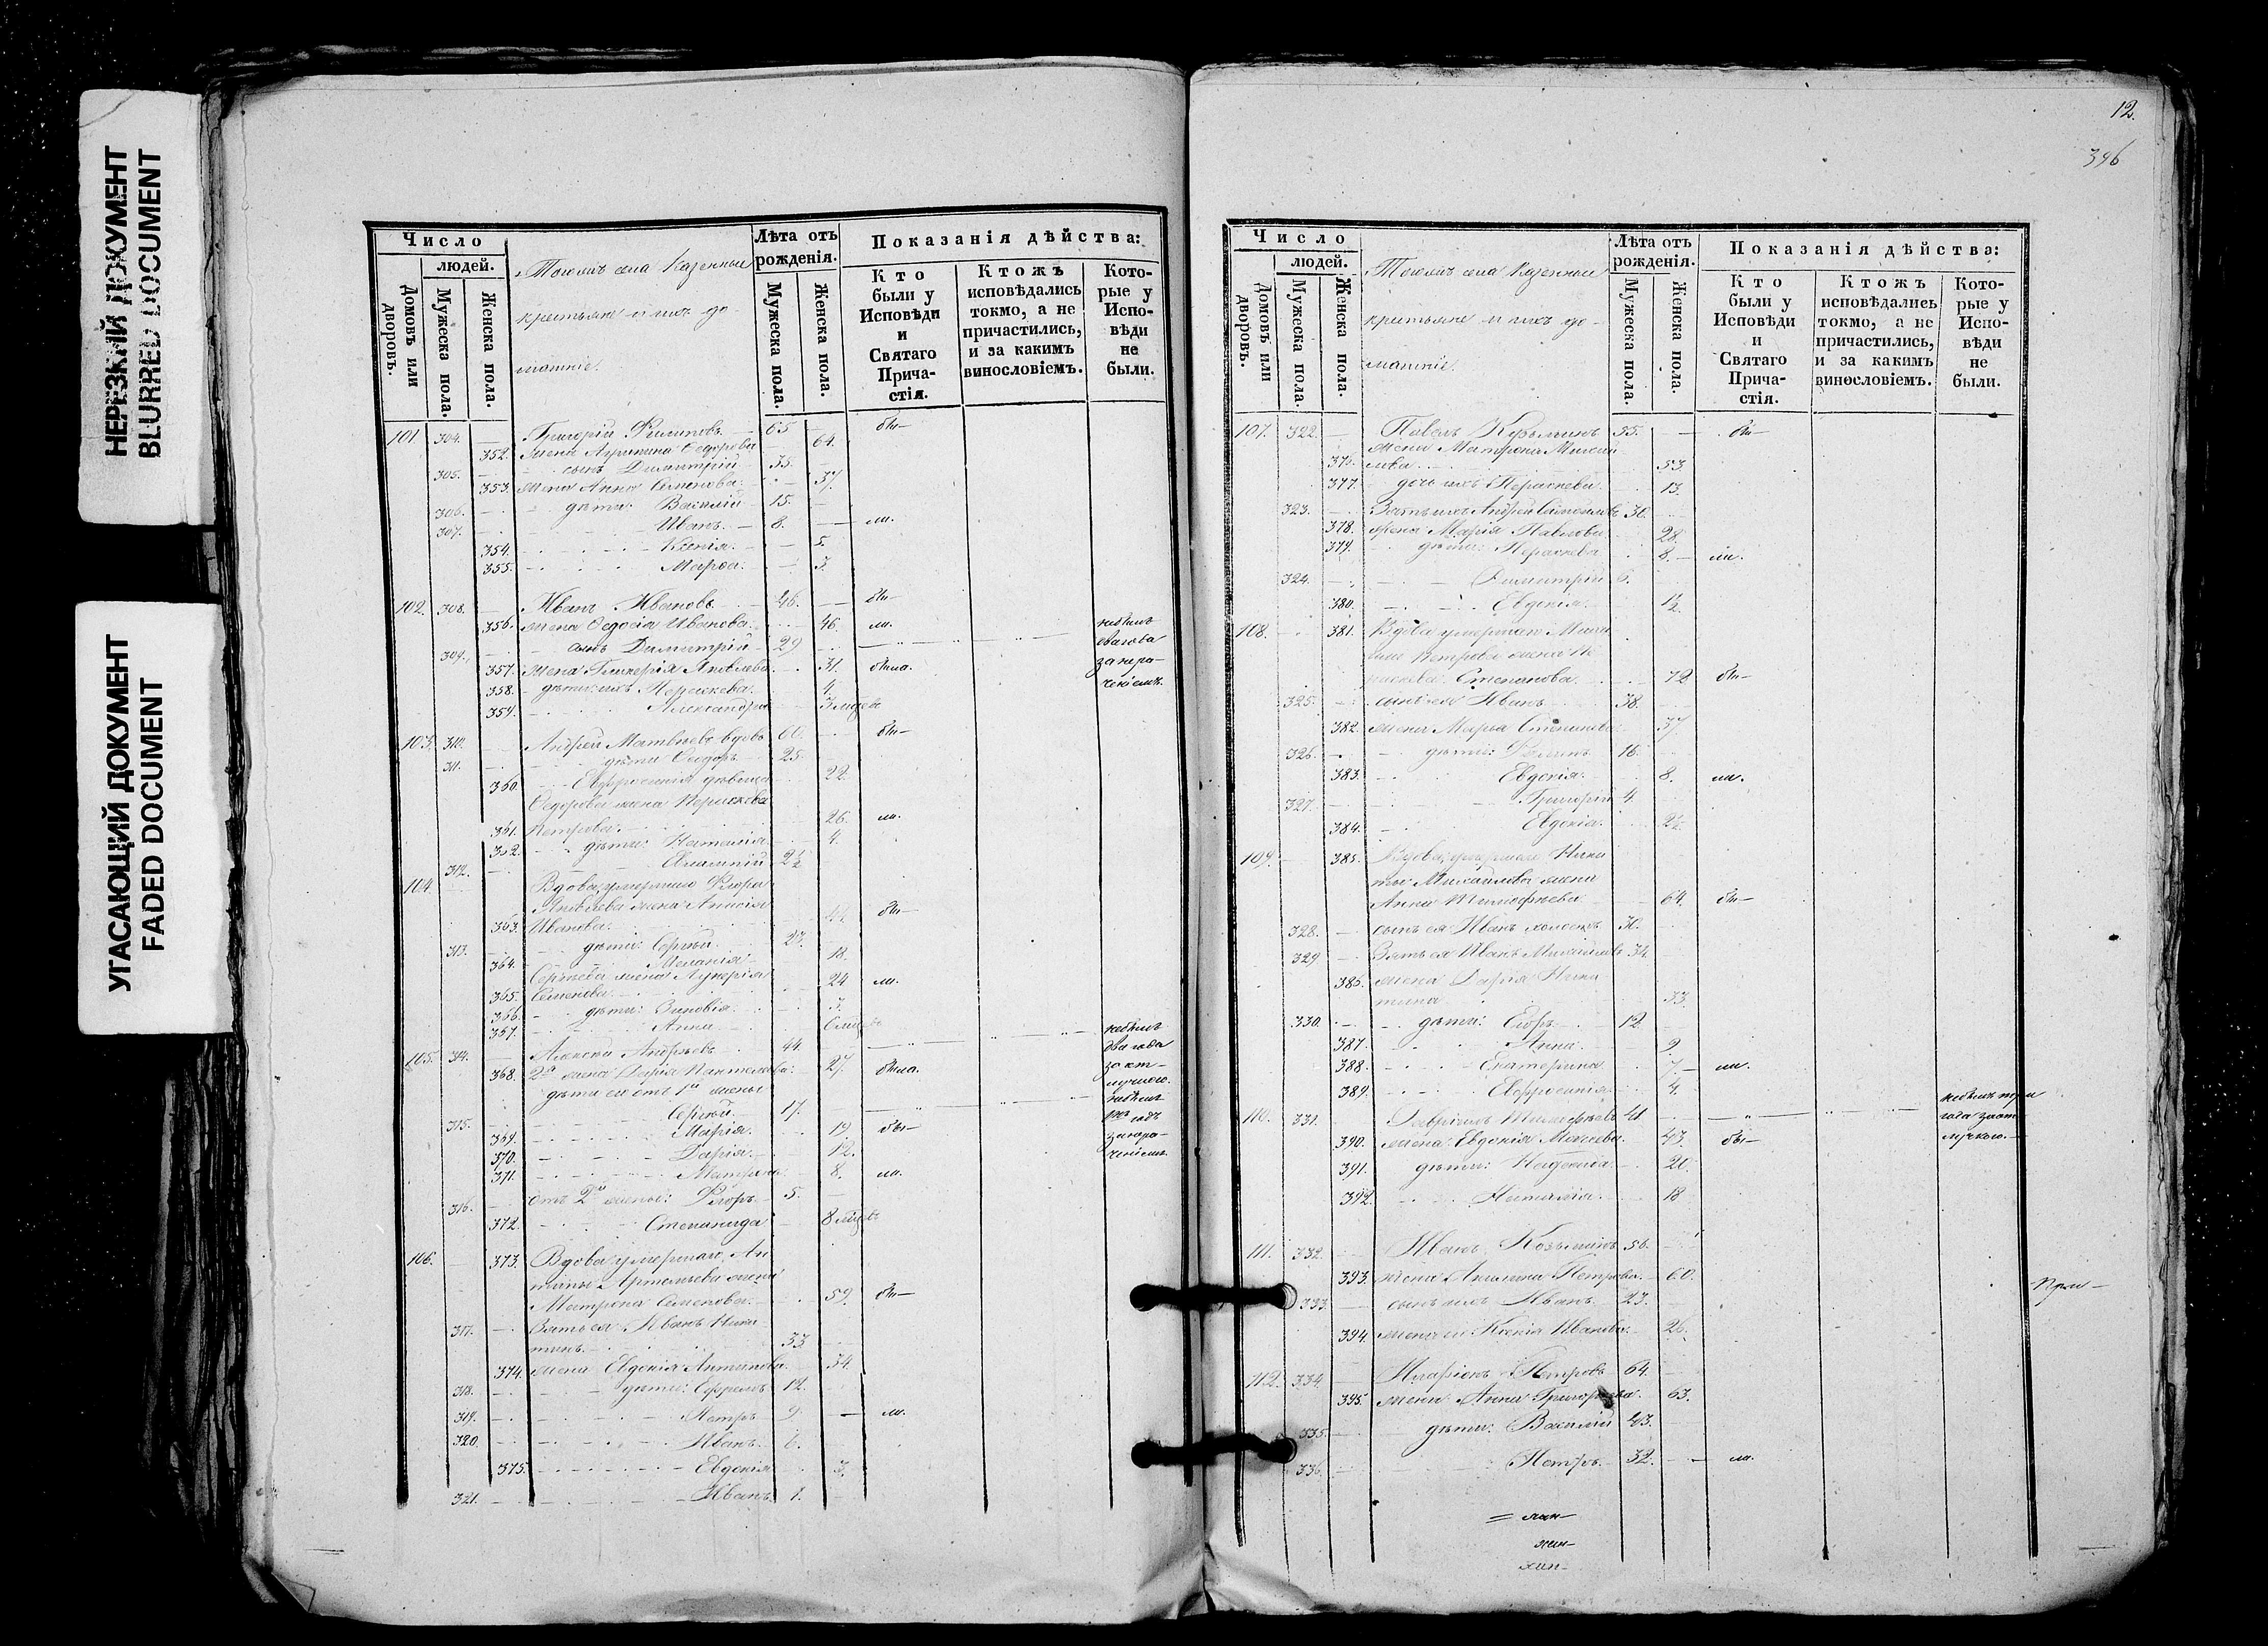 НЕРЕЗКИЙ ДОКУМЕНТ
BLURRED DOCUMENT
УГАСАЮЩИЙ ДОКУМЕНТ
FADED DOCUMENT
Число
людей.
Домовъ или дворовъ.
Мужеска пола.
Женска пола.
Тогожъ села Казенные
крестьяне и ихъ до-
машніе.
Лѣта отъ рожденія.
Мужеска пола.
Женска пола.
Показанія дѣйства:
Кто были у Исповѣди и Святаго Прича-стія.
Ктожъ исповѣдались токмо, а не причастились, и за какимъ винословіемъ.
Кото-рые у Испо-вѣди не были.
101 304. Григорій Филиповъ 65 бы-
352. жена Агрипина Ѳедорова 64.
305. сынъ Димитрій 38.
353. жена Анна Семенова 37.
306. дѣти: Василій 15.
307. Иванъ 8. мл.
354. Ксенія 5.
355. Марѳа 3.
102. 308. Иванъ Ивановъ 46. бы-
356. жена Ѳедосія Иванова 46. мл. небылъ
309. сынъ Димитрій 29
357. жена Гликерія Яковлева 31. была. за нера-
358. дѣти ихъ Параскева 4. ченіемъ.
359. Александра 3 мцевъ
103. 310. Андрей Матвѣевъ вдовъ 60. бы-
311. дѣти Ѳедоръ 25.
360. Евфросинія дѣвица 22.
Ѳедорова жена Параскева
361. Петрова. 26. мл.
362. дѣти: Наталія 4.
312. 2½
104. Вдова, умершаго Флора
Яковлева жена Анисія
363. Иванова. бы-
313. дѣти: Сергѣй 23.
364. Меланія 18.
Сергѣева жена Лукерія
365. Семенова 24 мл.
366. дѣти: Зиновія 3.
367. Анна 6 мцевъ
небылъ
105. 314. Алексѣй Андреевъ 44. два года
368. 2я жена Дарія Пантелеева 27. была. за от-
дѣти его отъ 1й жены лучкою.
небылъ
315. Сергѣй 17.
369. Марія 19. бы-
370. Дарія 12. ченіемъ.
371. Матрона 8. мл.
316. отъ 2й жены: Флоръ 5.
372. Степанида 8 мцевъ
106. 373. Вдова умершаго Ан
типы Артемьева жена
Матрона Семенова 59. бы-
317. Зять ея Иванъ Ники
тинъ 33.
374. жена Евдокія Антипова 34.
318. дѣти: Ефремъ 12.
319. Петръ 9. мл.
320. Иванъ 6.
375. Евдокія 3.
321. Иванъ 1.
12.
396
Число
людей.
Домовъ или дворовъ.
Мужеска пола.
Женска пола.
Тогожъ села Казенные
крестьяне и ихъ до-
машніе.
Лѣта отъ рожденія.
Мужеска пола.
Женска пола.
Показанія дѣйства:
Кто были у Исповѣди и Святаго Прича-стія.
Ктожъ исповѣдались токмо, а не причастились, и за какимъ винословіемъ.
Кото-рые у Испо-вѣди не были.
107. 322. Павелъ Кузьминъ 55. бы-
жена Матрона Михай
376. лова 53.
377. дочь ихъ Параскева 13.
323. Зять ихъ Андрей 30.
378. жена Марія Павлова 28.
379. дѣти: Параскева 8. мл.
324. Димитрій 6.
380. Евдокія 1½.
108. 381. Вдова умершаго Миха
ила Петрова жена Па
раскева Степанова 72 бы-
325. сынъ ея Иванъ 38.
382. жена Марья Степанова 37
326. дѣти: 16.
383. Евдокія 8. мл.
327. Григорій 4.
384. Евдокія 2½.
109. 385. Вдова, умершаго Ники
ты Михайлова жена
Анна Тимофѣева 64. бы-
328. сынъ ея Иванъ холостъ 30.
329 Зять ея Иванъ Михайловъ 34.
386. жена Дарія Ники
тина 33.
330. дѣти: Егоръ 12.
387. Анна 9.
388. Екатерина 7. мл.
389. Евфросинія 4.
небылъ три
110. 331. Гавріилъ Тимофѣевъ 41. года за от
390. жена Евдокія Моисеева 43. бы- лучкою.
391. дѣти: Надежда 20.
392. Наталія 18
111. 332. Иванъ Козьминъ 56.
393. жена Акилина Петрова 60.
При-
333. сынъ ихъ Иванъ 23.
394. жена его Ксенія Иванова 26.
112. 334. Иларіонъ Петровъ 64.
395. жена Анна Григорьева 63.
335. дѣти: Василій 43.
336. Петръ 32. мл.